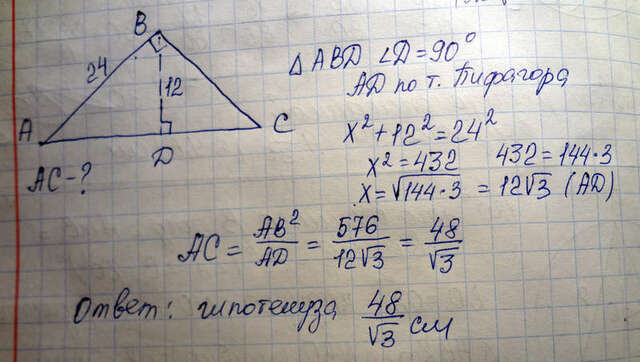 B
24
12
A
C
D
AC-?
△ABD ∠D=90°
AD по т. Пифагора
x²+12²=24²
x²=432 432=144·3
x=√144·3 = 12√3 (AD)
AC = AB²/AD = 576/12√3 = 48/√3
Ответ: гипотенуза 48/√3 см